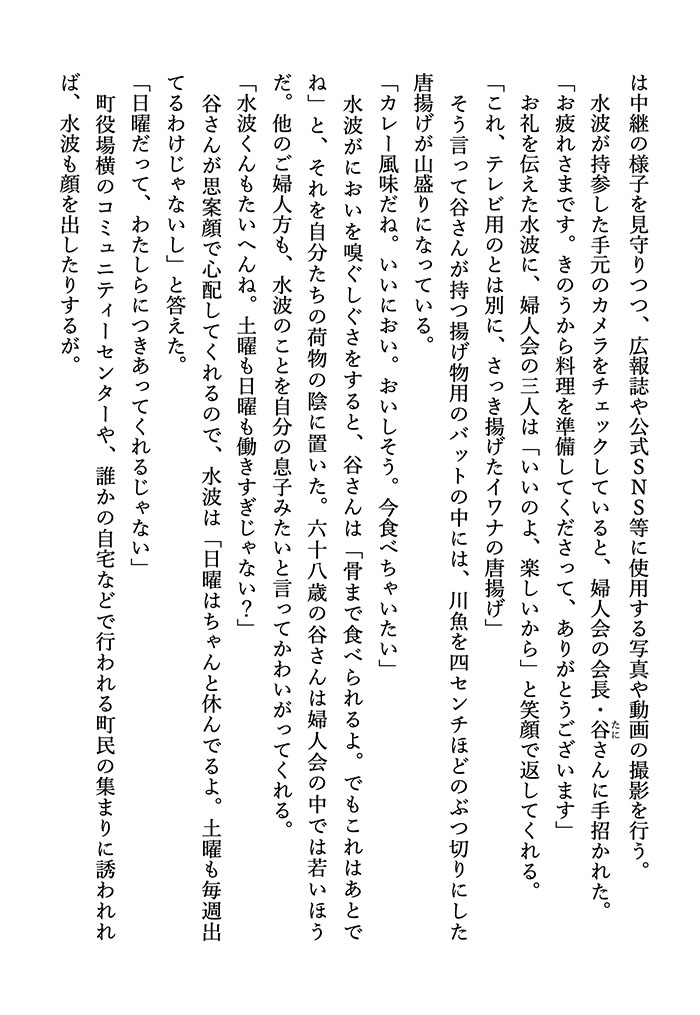 は中継の様子を見守りつつ、広報誌や公式ＳＮＳ等に使用する写真や動画の撮影を行う。
　水波が持参した手元のカメラをチェックしていると、婦人会の会長・谷さんに手招かれた。
たに
「お疲れさまです。きのうから料理を準備してくださって、ありがとうございます」
　お礼を伝えた水波に、婦人会の三人は「いいのよ、楽しいから」と笑顔で返してくれる。
「これ、テレビ用のとは別に、さっき揚げたイワナの唐揚げ」
　そう言って谷さんが持つ揚げ物用のバットの中には、川魚を四センチほどのぶつ切りにした
唐揚げが山盛りになっている。
「カレー風味だね。いいにおい。おいしそう。今食べちゃいたい」
　水波がにおいを嗅ぐしぐさをすると、谷さんは「骨まで食べられるよ。でもこれはあとで
ね」と、それを自分たちの荷物の陰に置いた。六十八歳の谷さんは婦人会の中では若いほう
だ。他のご婦人方も、水波のことを自分の息子みたいと言ってかわいがってくれる。
「水波くんもたいへんね。土曜も日曜も働きすぎじゃない？」
　谷さんが思案顔で心配してくれるので、水波は「日曜はちゃんと休んでるよ。土曜も毎週出
てるわけじゃないし」と答えた。
「日曜だって、わたしらにつきあってくれるじゃない」
　町役場横のコミュニティーセンターや、誰かの自宅などで行われる町民の集まりに誘われれ
ば、水波も顔を出したりするが。